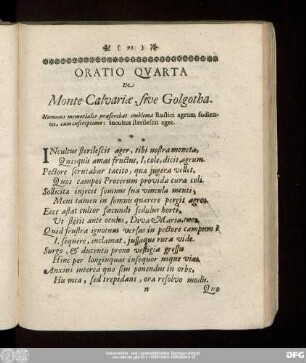 ( 21 )
ORATIO QVARTA
De
Monte Calvariæ sive Golgotha.
Nomini memoriali præfuerbat emblema Rustici agrum fodien-
tis, cum inscriptione: Incultus sterilescit ager.
INcultus sterilescit ager, tibi nostra moneta,
Quisquis amas fructus, I, cole, dicit agrum.
Pectore scrutabar tacito, qua jugera vellet,
Quos campos Procerum provida cura coli.
Sollicita injecit somnus sua vincula menti,
Meni tamen in somnis quærere pergit agros.
Ecce astat cultor sæcundi sedulus horti,
Ut stetit ante oculos, Diva Maria, tuos.
Quid frustra ignotum versas in pectore campum?
I, sequere, inclamat, jussaque rura vide.
Surgo, & ducentis prono vestigia gressu
Hinc per longinquas insequor usque vias.
Anxius interea quo sim ponendus in orbe,
Hu mea, sed trepidans, ora resolvo modis.
n
Quo